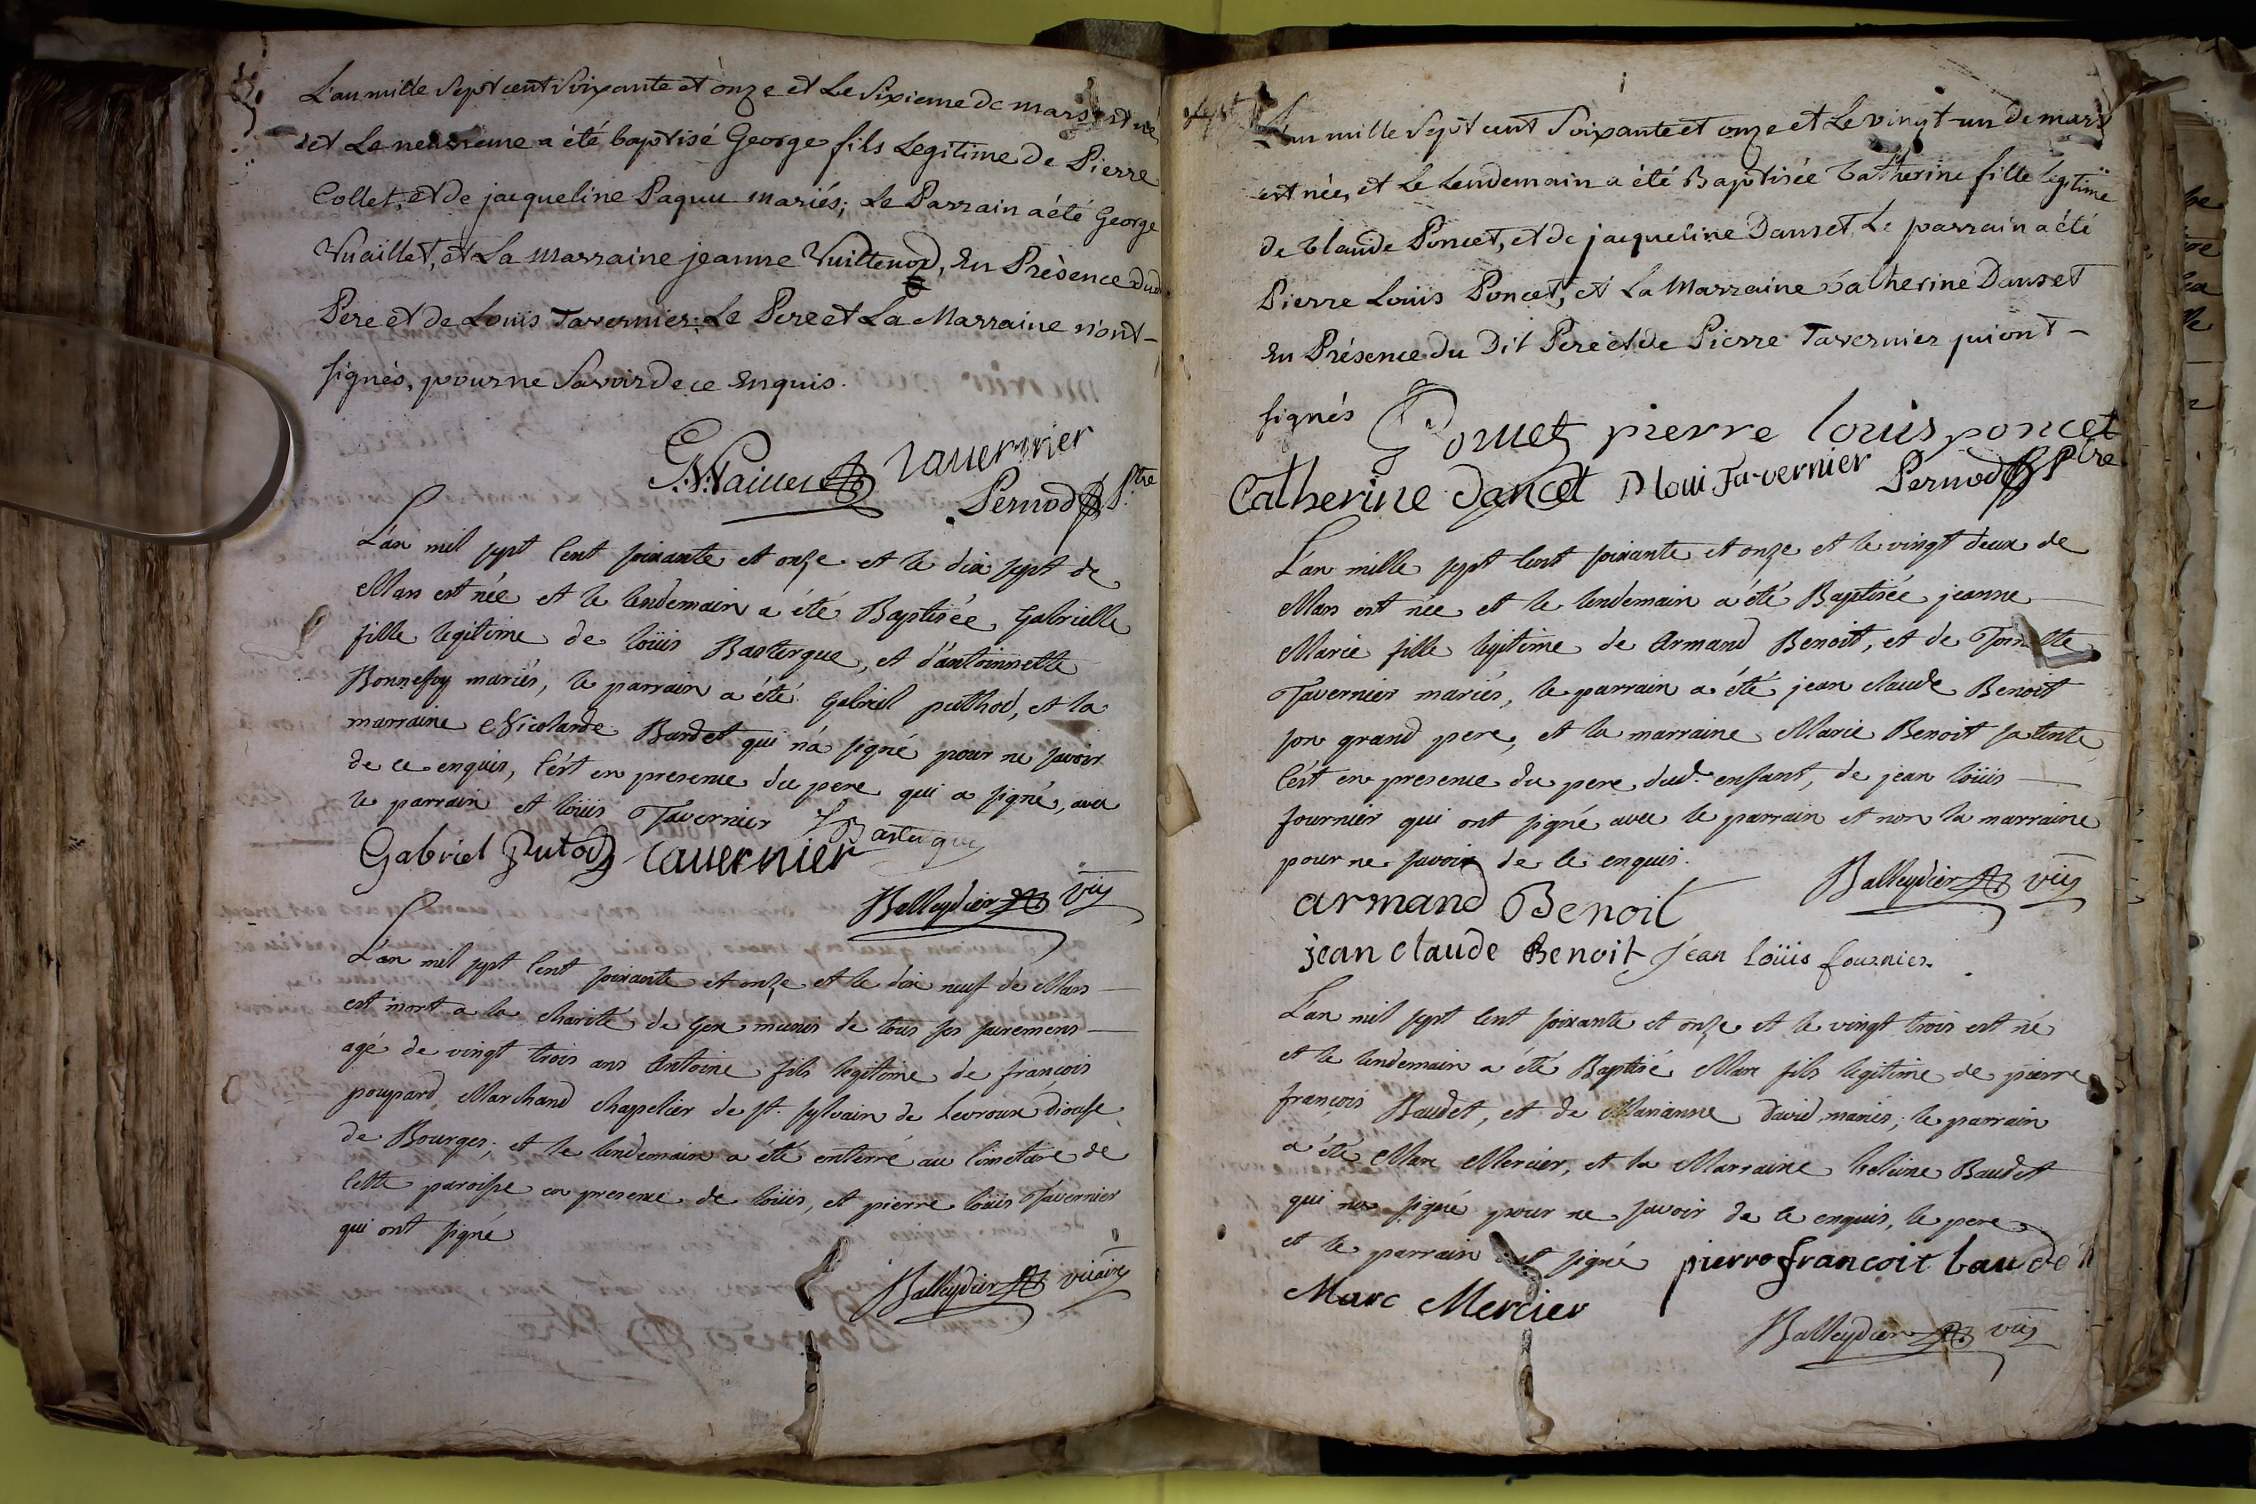 L'an mille Sept cent Soixante et onze et Le Sixieme de mars est né
et Le neuvieme a été baptisé George fils Legitime de Pierre
Collet, et de jacqueline Paquu mariés; Le Parrain a été George
Vuaillet, et La Marraine jeanne Vuillenod, En Présence dud
Pere et de Louis Tavernier; Le Pere et La Marraine n'ont-
signés, pour ne Savoir de ce Enquis.
Tavernier
Pernod Ptre
L'an mil sept Cent soixante et onze et le dix sept de
Mars est née et le lendemain a été Baptisée Gabrielle
fille legitime de loüis Bastergue, et d'antoinnette
Bonnefoy mariés, le parrain a été Gabriel puthod, et la
marraine Nicolarde Bardet qui n'a signé pour ne savoir
de ce enquis, C'est en presence du pere qui a signé, avec
le parrain et loüis Tavernier Bastergue
Gabriel Putod Tavernier
Balleydier vic
L'an mil sept Cent soixante et onze et le dix neuf de Mars
est mort a la charité de Gex munis de tous ses sacremens
agé de vingt trois ans Antoine fils legitime de françois
poupard Marchand chapelier de st. sylvain de Levroux diocese
de Bourges; et le lendemain a été enterré au Cimetiere de
Cette paroisse en presence de loüis, et pierre loüis Tavernier
qui ont signé
Balleydier vicaire
L'an mille Sept cent Soixante et onze et Le vingt-un de mars
est née, et Le Lendemain a été Baptisée Catherine fille Legitime
de Claude Poncet, et de jacqueline Danset, Le parrain a été
Pierre Loüis Poncet, et La Marraine Catherine Danset
En Présence du Dit Pere et de Pierre Tavernier qui ont-
signés Poncet pierre louis poncet
Catherine dancet P loui Ta-vernier Pernod Ptre
L'an mille sept Cent soixante et onze et le vingt deux de
Mars est née et le lendemain a été Baptisée jeanne
Marie fille legitime de Armand Benoit, et de
Tavernier mariés, le parrain a été jean claude Benoit
son grand pere, et la marraine Marie Benoit sa tente
C'est en presence du pere dud. enfant, de jean loüis
fournier qui ont signé avec le parrain et non la marraine
pour ne savoir de Ce enquis.
Balleydier vic
armand Benoit
jean claude Benoit jean loüis fournier
L'an mil sept Cent soixante et onze et le vingt trois est né
et le lendemain a été Baptisé Marc fils legitime de pierre
françois Baudet, et de Marianne david mariés; le parrain
a été Marc Mercier, et la Marraine Baudet
qui n'a signé pour ne savoir de Ce enquis, le pere
et le parrain ont signé pierre francoit baudet
Marc Mercier
Balleydier vic